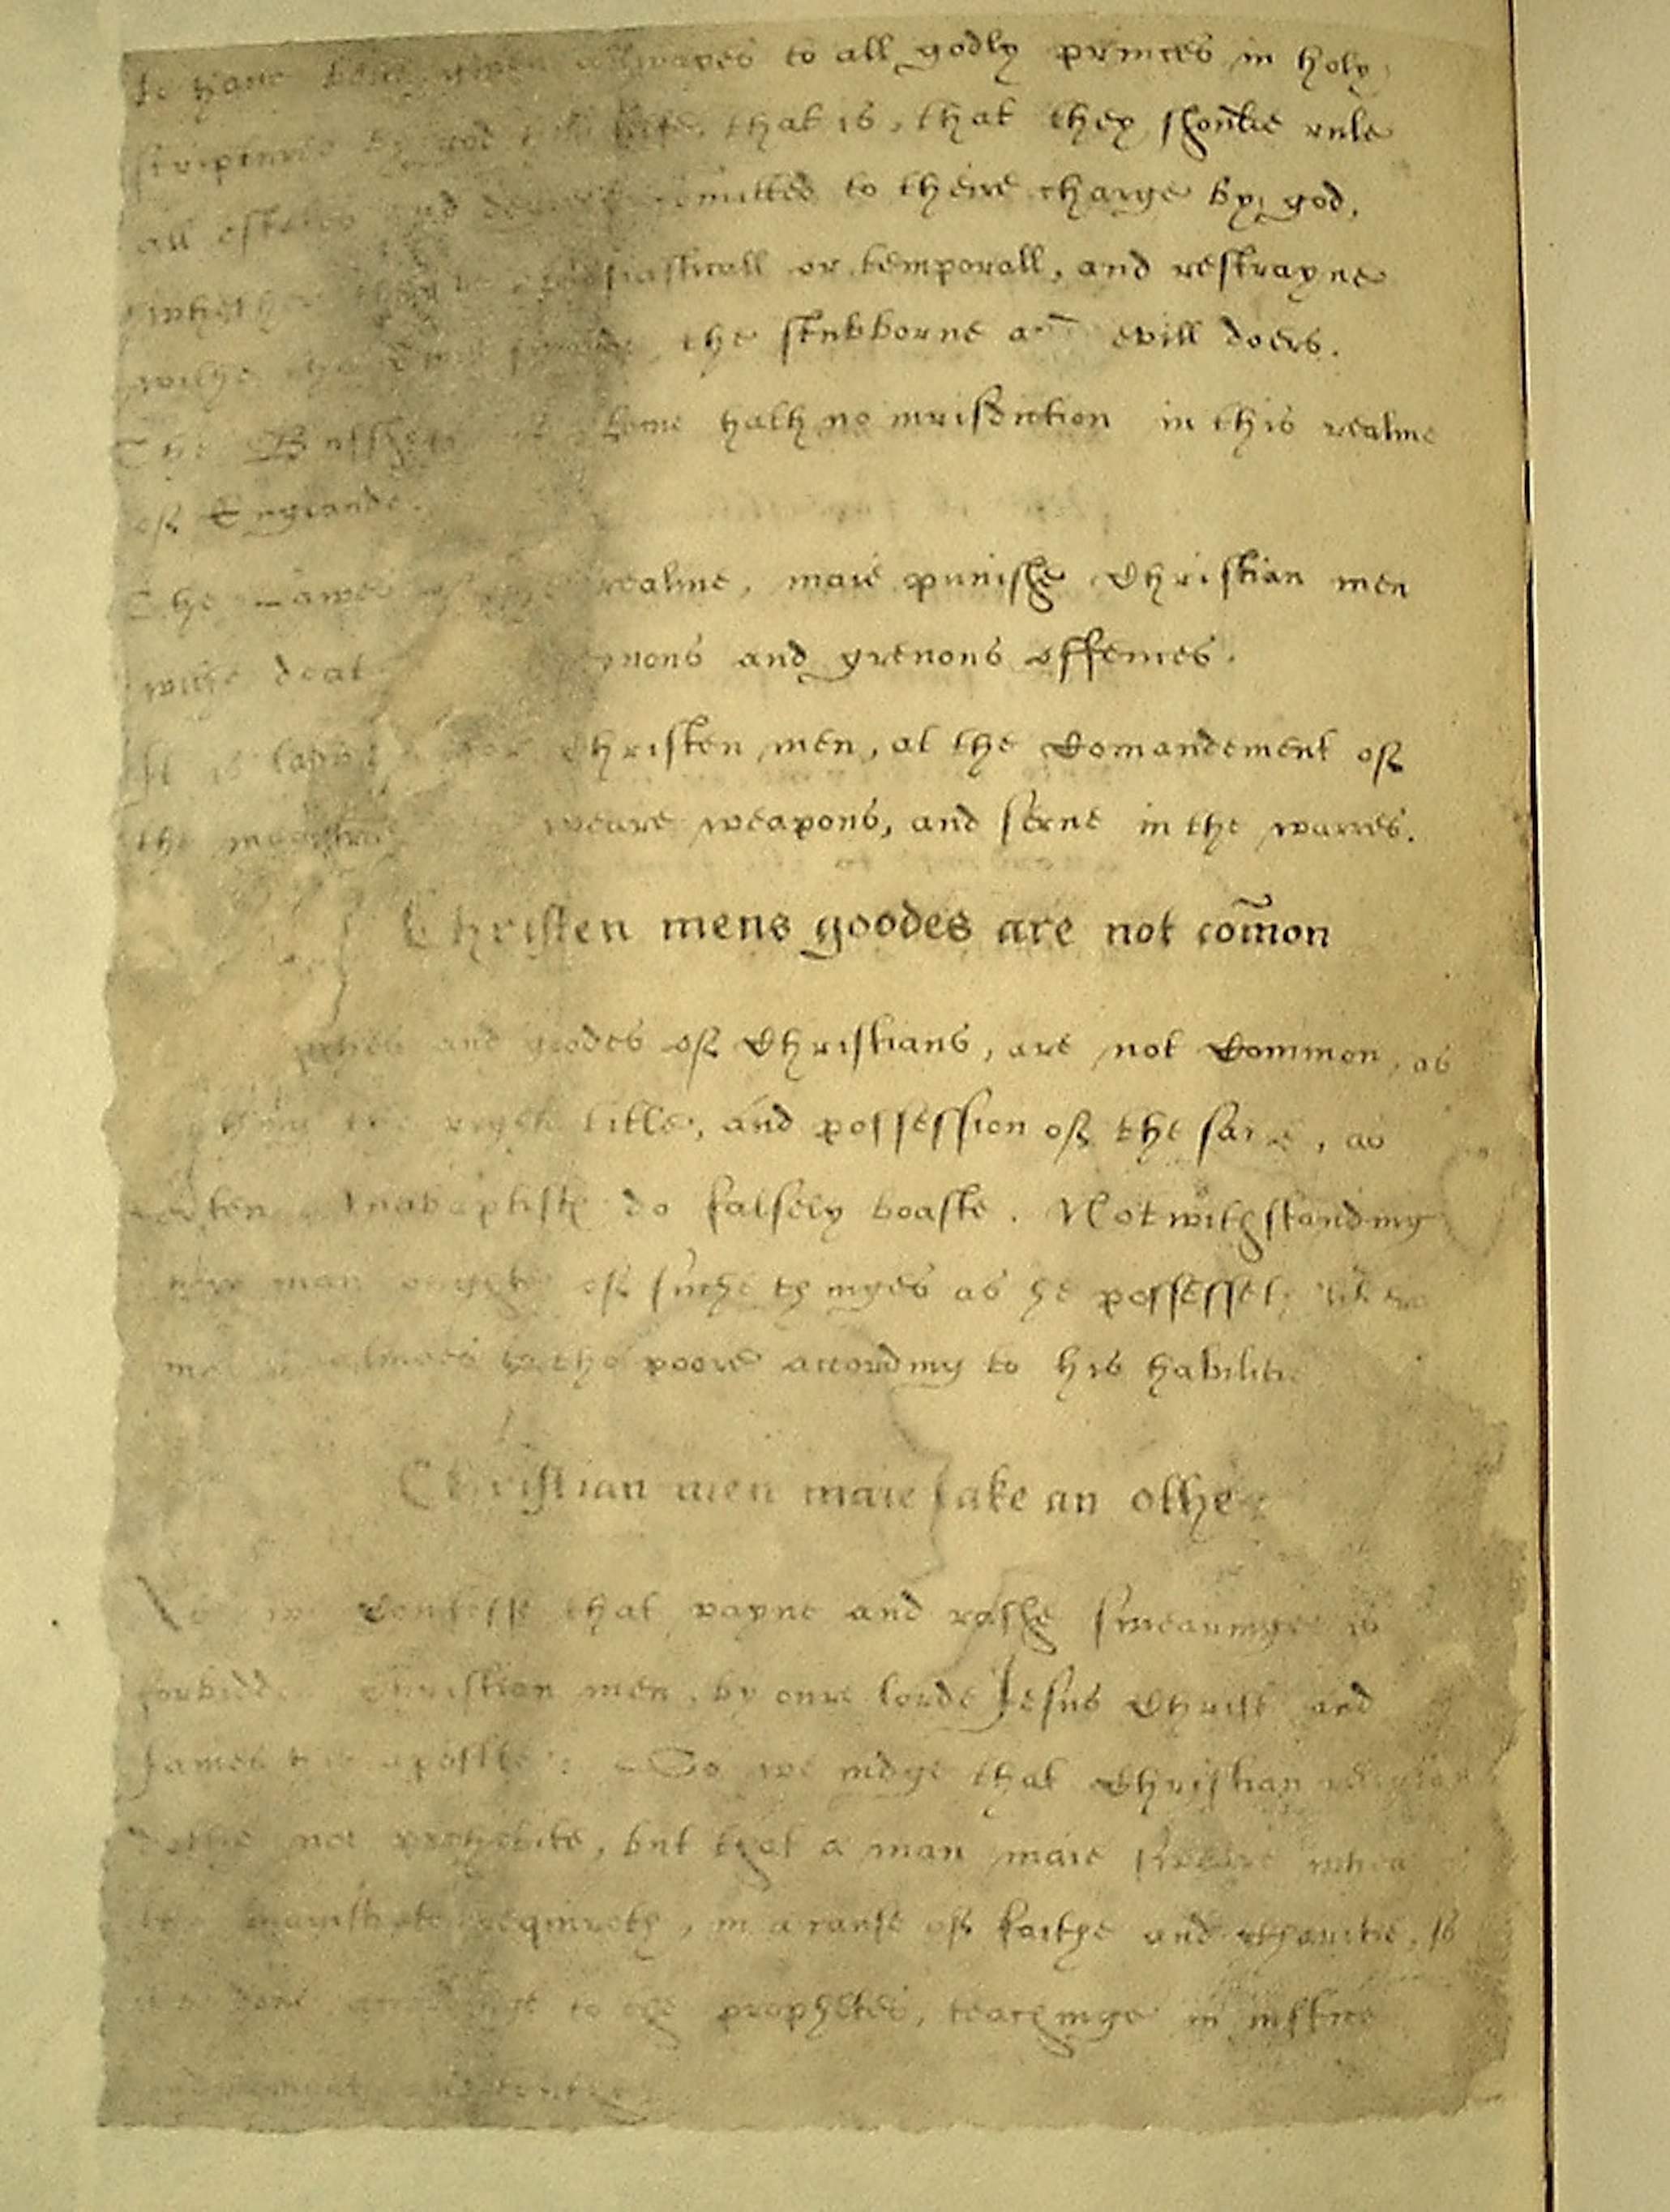 to haue bene giuen allwayes to all godly princes in holy
scriptures by god him selfe, that is, that they shoulde rule
all estates and degrees comitted to theire charge by god,
whether they be ecclesiasticall or temporall, and restrayne
withe the the stubborne and evill doers.
The Busshop of Rome hath no iurisdiction in this realme
of Englande.
The Lawes of the realme, maie punishe Christian men
withe deat and greuous offences.
It is for Christen men, at the Comandement of
the weare weapons, and serue in the warres.
Christen mens goodes are not com̃on
and goodes of Christians, are not Common, as
the right title, and possession of the same, as
Anabaptists do falsely boaste. Notwithstanding
man oughte of suche thinges as he possesseth
to the poore according to his habilitie
Christian men maie take an othe
we confesse that vayne and rashe swearinge is
forbidden Christian men, by oure lorde Jesus Christ and
James his apostle: So we iudge that Christian religion
dothe not prohibite, but that a man maie sweare when
the magistrate requireth, in a cause of faithe and charitie, so
it be done to the prophetes, teachinge in iustice